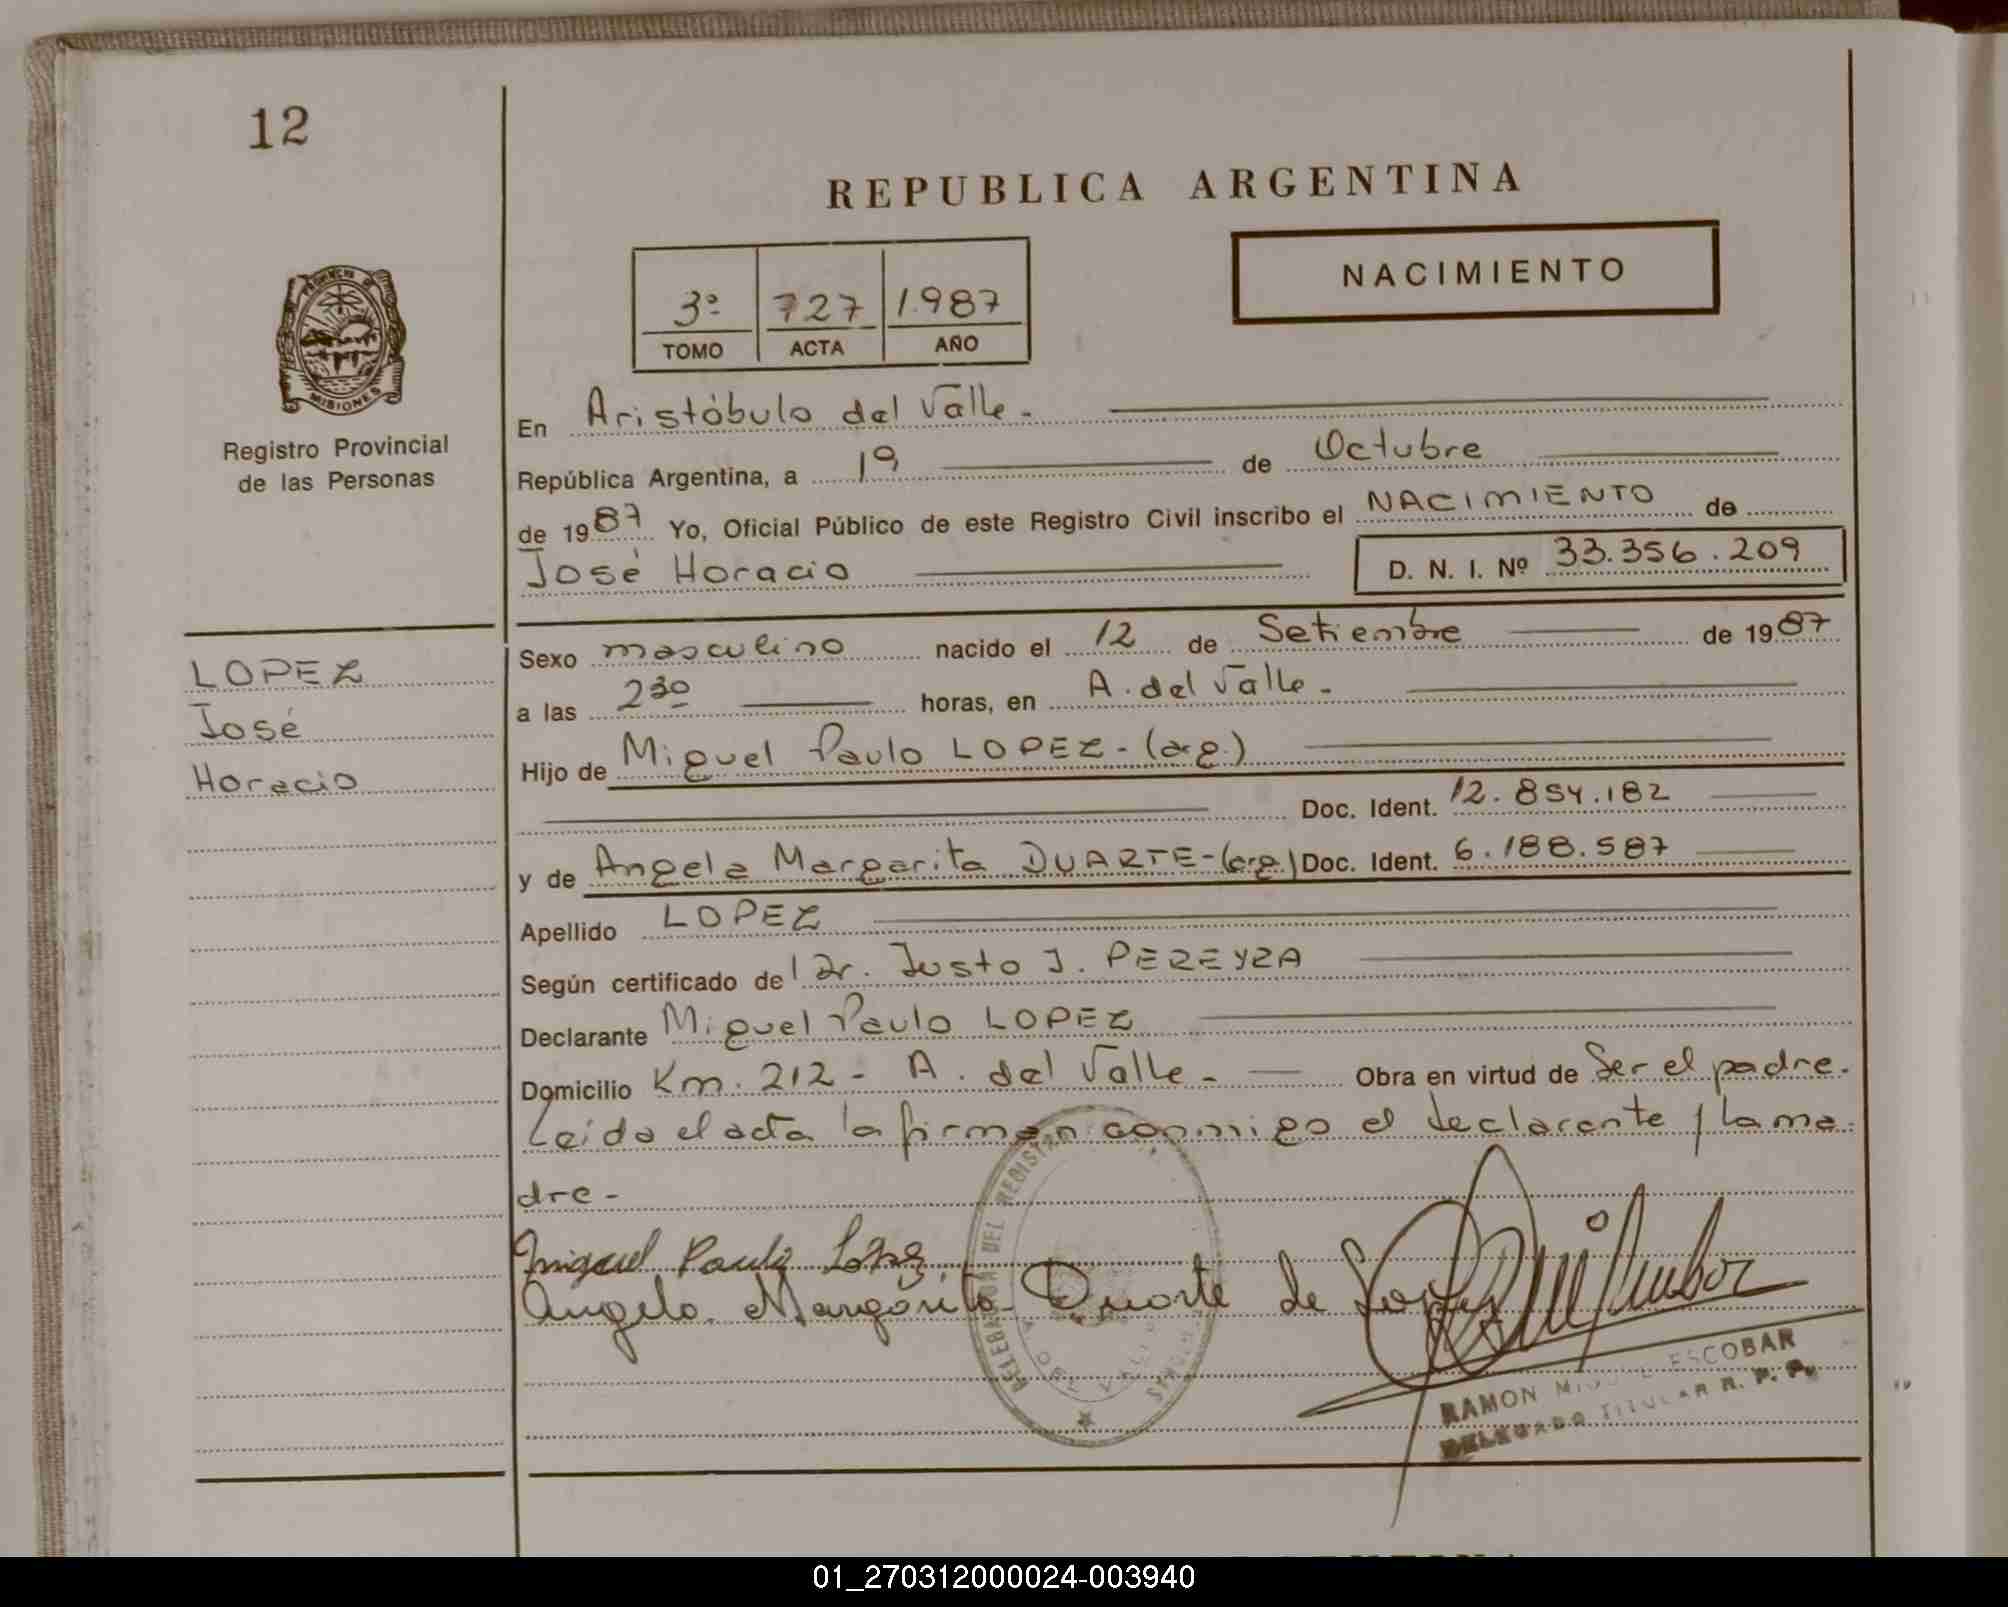 12
REPUBLICA ARGENTINA
NACIMIENTO
3º 727 1.987
TOMO ACTA AÑO
MISIONES
Registro Provincial
de las Personas
En Aristóbulo del Valle.-
República Argentina, a 19 de Octubre
de 1987 Yo, Oficial Público de este Registro Civil inscribo el NACIMIENTO de
José Horacio D. N. I. Nº 33.356.209
LOPEZ
José
Horacio
Sexo masculino nacido el 12 de Setiembre de 1987
a las 2 30 horas, en A. del Valle.-
Hijo de Miguel Paulo LOPEZ - (arg.)
Doc. Ident. 12.854.182
y de Angela Margarita DUARTE-(arg) Doc. Ident. 6.188.587
Apellido LOPEZ
Según certificado del Dr. Justo J. PEREYRA
Declarante Miguel Paulo LOPEZ
Domicilio Km. 212 - A. del Valle.- Obra en virtud de Ser el padre.
Leida el acta la firman conmigo el declarante y la ma-
dre-
Miguel Paulo Lopez
Angela Margarita Duarte de Lopez
DELEGACION DEL REGISTRO
RAMON MIGUEL ESCOBAR
DELEGADO TITULAR R. P. P.
01_270312000024-003940